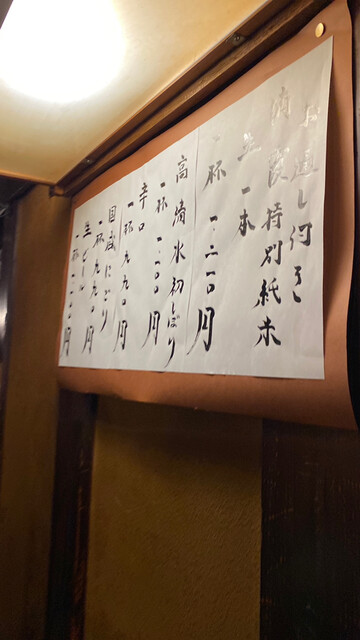 お通し
浦霞特別純米
生一本
一杯 一.二一〇円
高清水初しぼり
一杯 一.一〇〇円
辛口
一杯 九九〇円
国盛にごり
一杯 九九〇円
生ビール
一杯